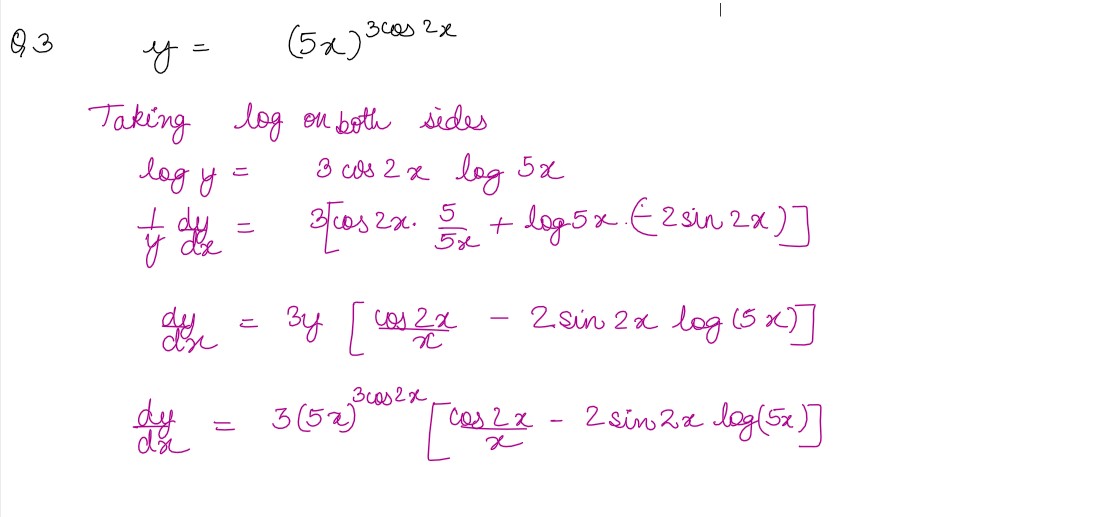 Q3 y = (5x)^{3cos 2x}
Taking log on both sides
log y = 3 cos 2x log 5x
1/y dy/dx = 3[cos 2x · 5/5x + log 5x · (-2 sin 2x)]
dy/dx = 3y [cos 2x/x - 2 sin 2x log (5x)]
dy/dx = 3(5x)^{3cos2x} [cos 2x/x - 2 sin 2x log(5x)]